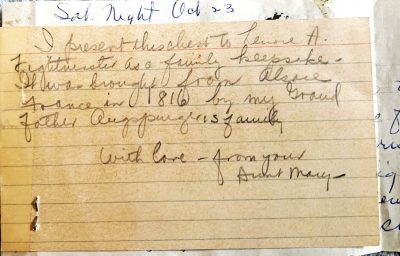 Sat. Night Oct 23
I present this chest to Lenore A.
Lightmister as a family keepsake -
It was brought from Alsace
France in 1816 by my Grand
father Augspurgers family
With love - from your
Aunt Mary -